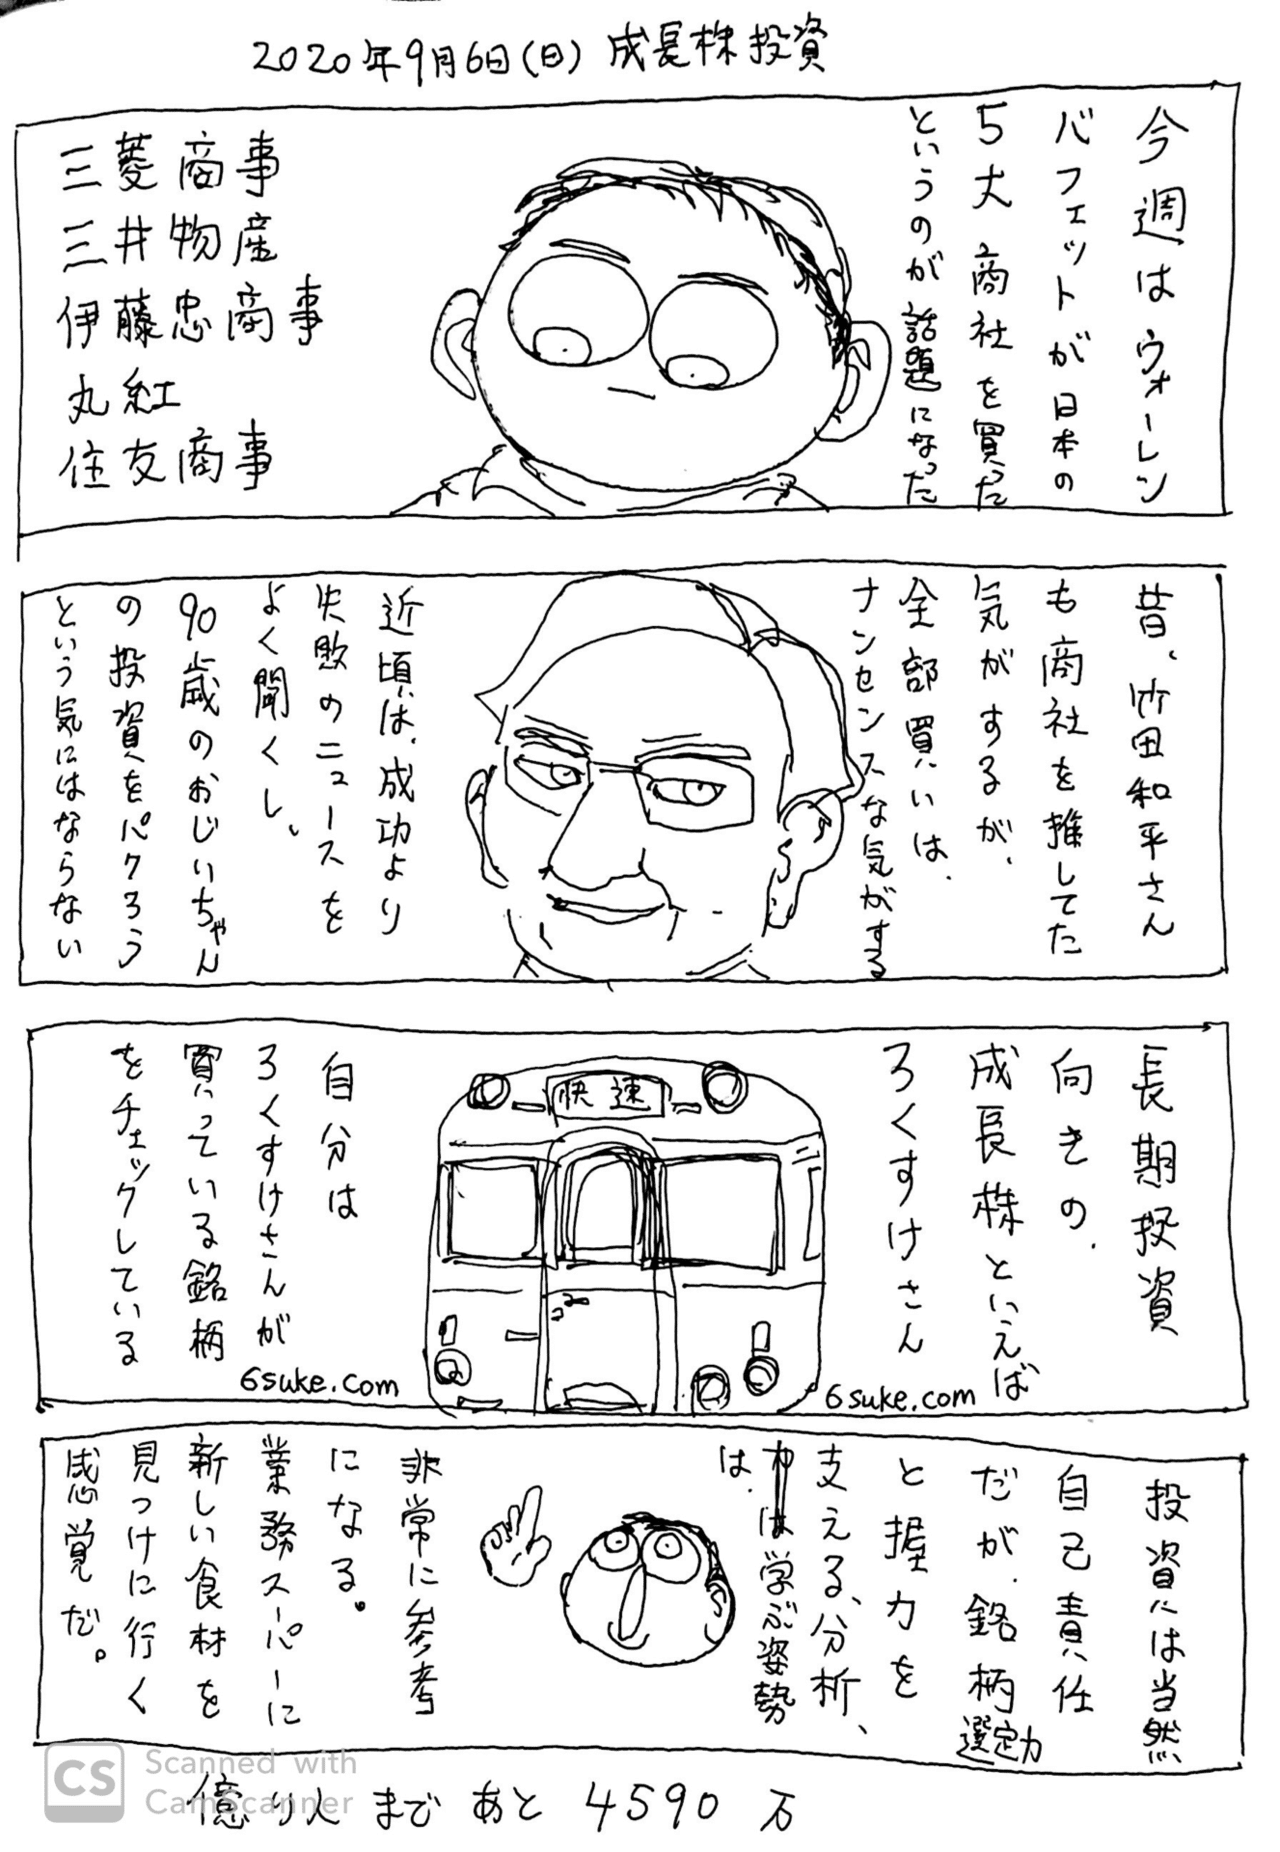 2020年9月6日(日) 成長株投資
今週はウォーレン
バフェットが日本の
5大商社を買った
というのが話題になった
三菱商事
三井物産
伊藤忠商事
丸紅
住友商事
昔、竹田和平さん
も商社を推してた
気がするが、
全部買いは、
ナンセンスな気がする
近頃は、成功より
失敗のニュースを
よく聞くし、
90歳のおじいちゃん
の投資をパクろう
という気にはならない
長期投資
向きの、
成長株といえば
ろくすけさん
6suke.com
快速
自分は
ろくすけさんが
買っている銘柄
をチェックしている
6suke.com
投資には当然、
自己責任
だが、銘柄選定力
と握力を
支える、分析、
は学ぶ姿勢
は、
非常に参考
になる。
業務スーパーに
新しい食材を
見つけに行く
感覚だ。
CS Scanned with
CamScanner
億り人まであと4590万